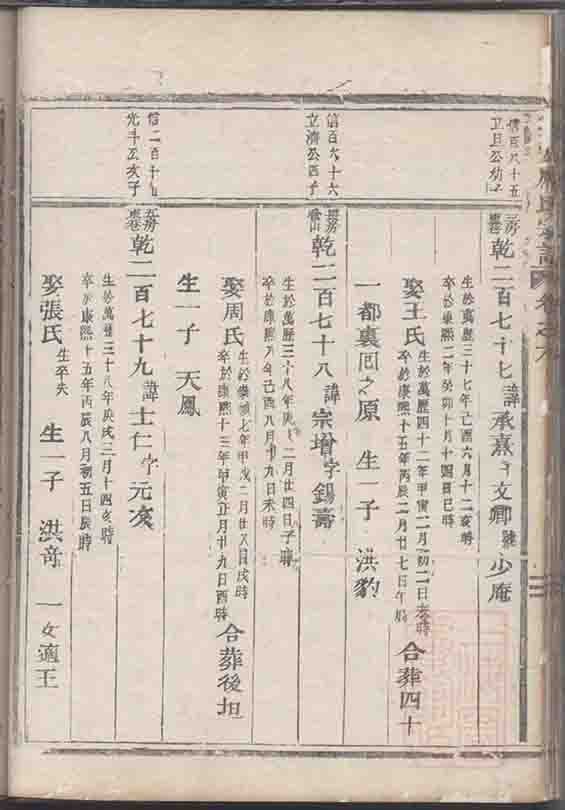 信百八十五
立旦公幼子
三房
乾二百七十七 諱承熹 字文卿 號少庵
生於萬歷三十七年己酉六月十二亥時
卒於康熙二年癸卯十月十四日巳時
娶王氏
生於萬歷四十二年甲寅二月初二日亥時
卒於康熙十五年丙辰二月廿七日午時
合葬四十
一都裏回之原 生一子 洪豹
信百九十六
立濟公四子
乾二百七十八 諱宗增 字錫壽
生於萬歷三十八年庚戌二月廿四日子時
卒於康熙八年己酉八月十九日未時
娶周氏
生於崇禎七年甲戌二月廿八日戌時
卒於康熙十三年甲寅正月廿九日酉時
合葬後坦
生一子 天鳳
信二百十
光斗公次子
乾二百七十九 諱士仁 字元亥
生於萬歷三十八年庚戌三月十四亥時
卒於康熙十五年丙辰八月初五日辰時
娶張氏 生卒失 生一子 洪奇 一女適王